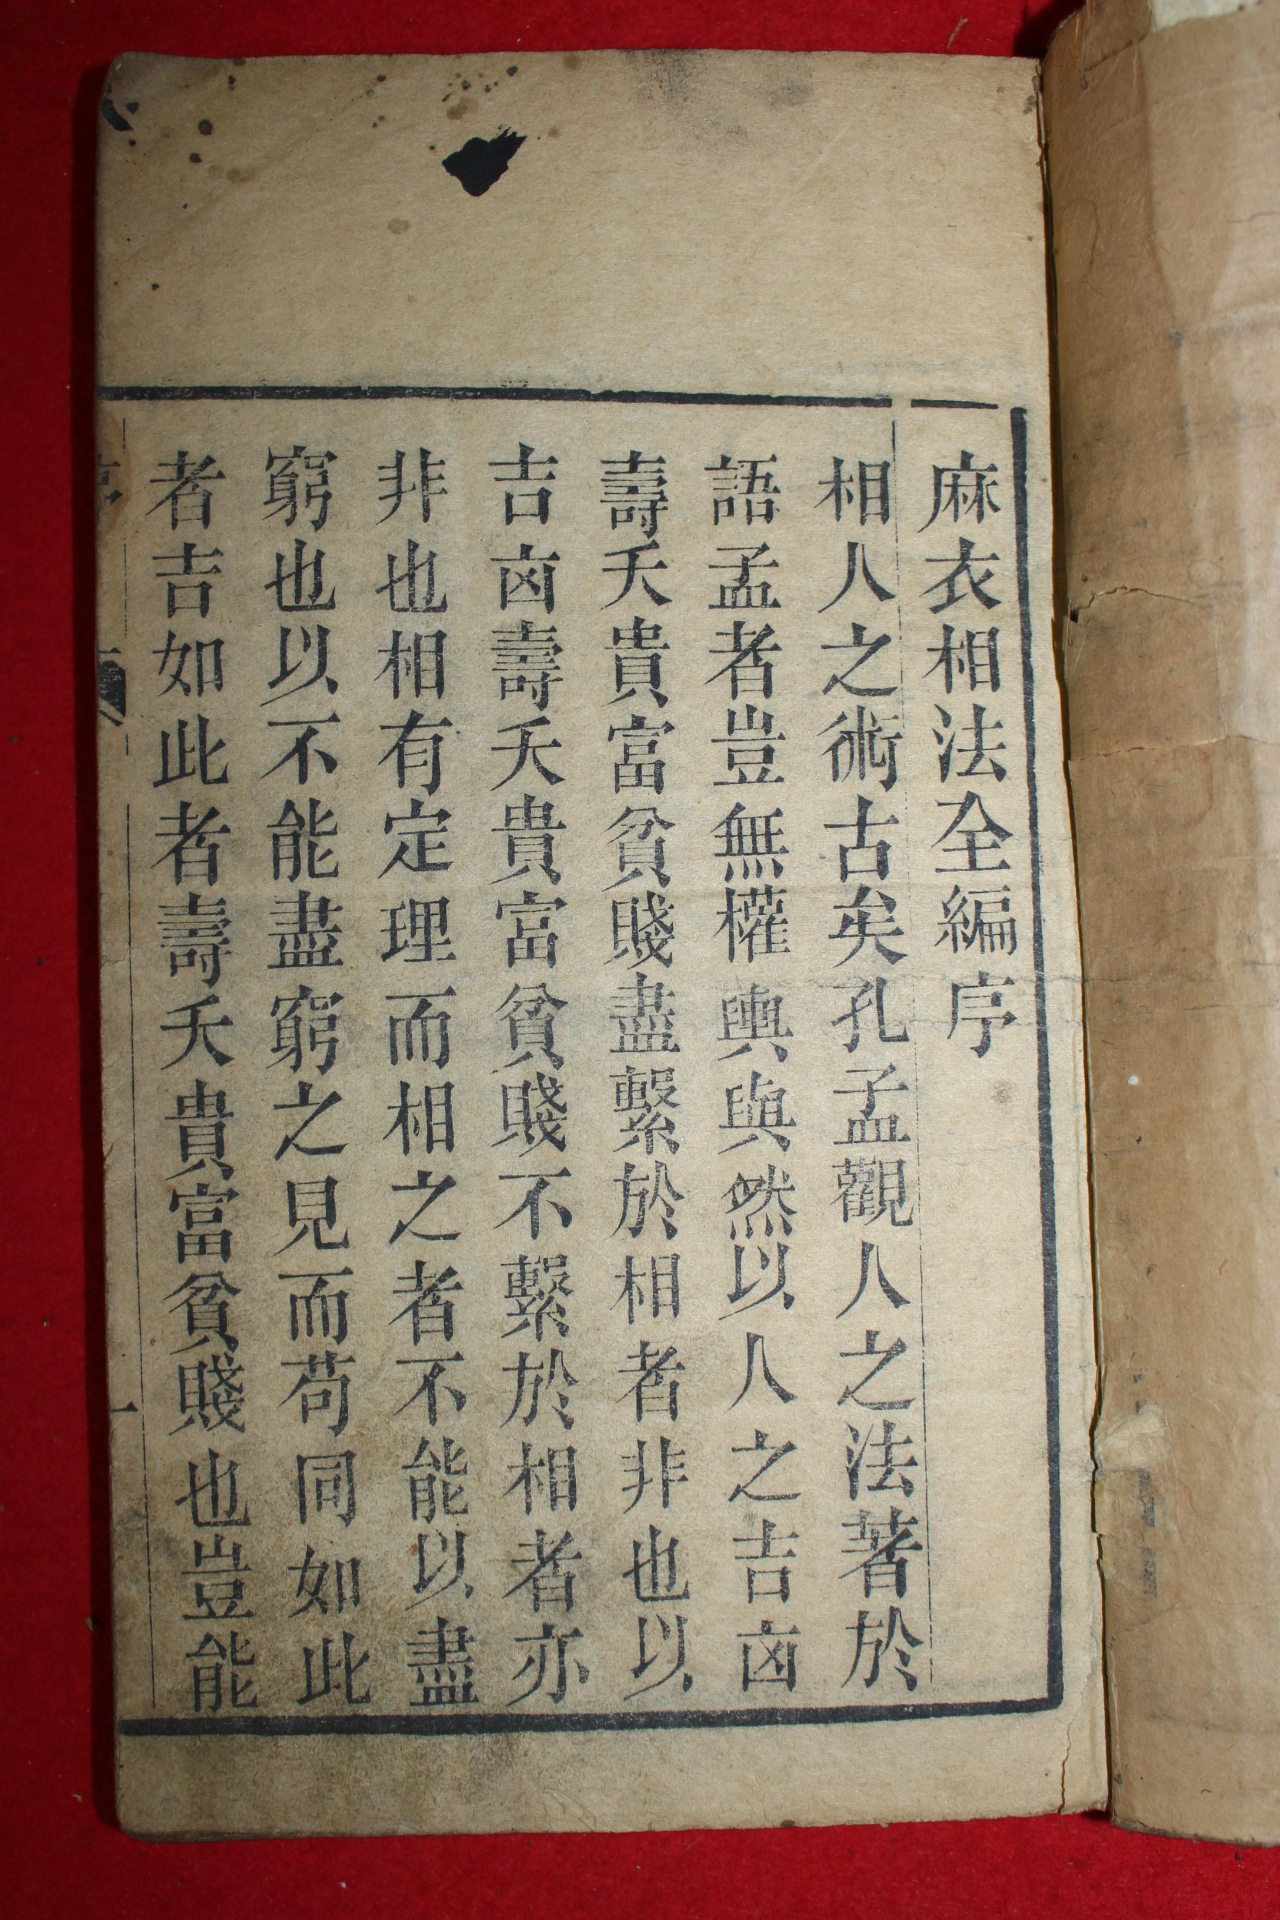 麻衣相法全編序
相人之術古矣孔孟觀人之法著於
語孟者豈無權輿與然以人之吉凶
壽夭貴富貧賤盡繫於相者非也以
吉凶壽夭貴富貧賤不繫於相者亦
非也相有定理而相之者不能以盡
窮也以不能盡窮之見而苟同如此
者吉如此者壽夭貴富貧賤也豈能